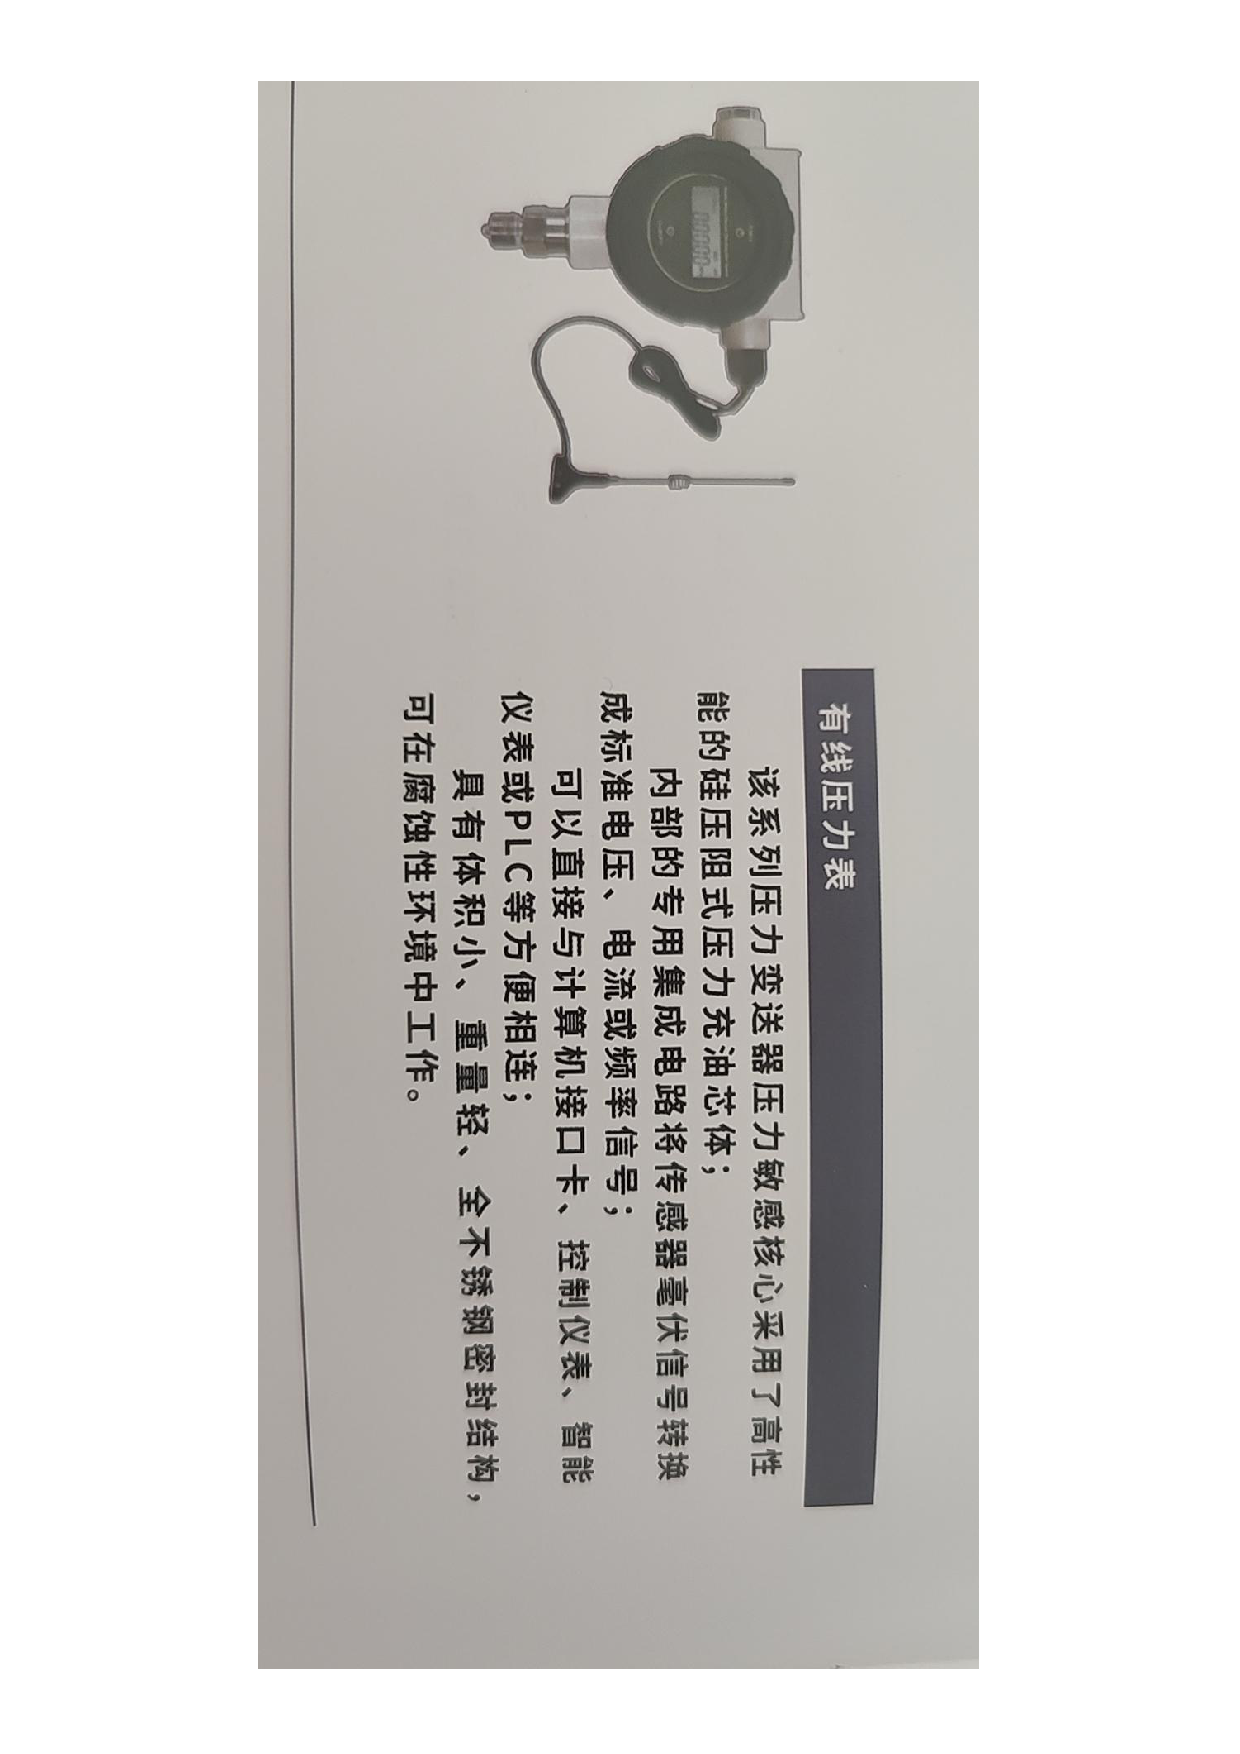 有线压力表
该系列压力变送器压力敏感核心采用了高性
能的硅压阻式压力充油芯体；
内部的专用集成电路将传感器毫伏信号转换
成标准电压、电流或频率信号；
可以直接与计算机接口卡、控制仪表、智能
仪表或PLC等方便相连；
具有体积小、重量轻、全不锈钢密封结构，
可在腐蚀性环境中工作。